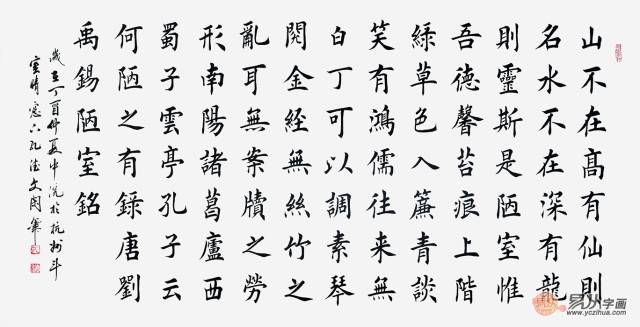 山不在高有仙則
名水不在深有龍
則靈斯是陋室惟
吾德馨苔痕上階
綠草色入簾青談
笑有鴻儒往来無
白丁可以調素琴
閱金經無絲竹之
亂耳無案牘之勞
形南陽諸葛廬西
蜀子雲亭孔子云
何陋之有錄唐劉
禹錫陋室銘
歲在丁酉仲夏中浣於杭州斗
室晴窓
易从字画
www.yczihua.com